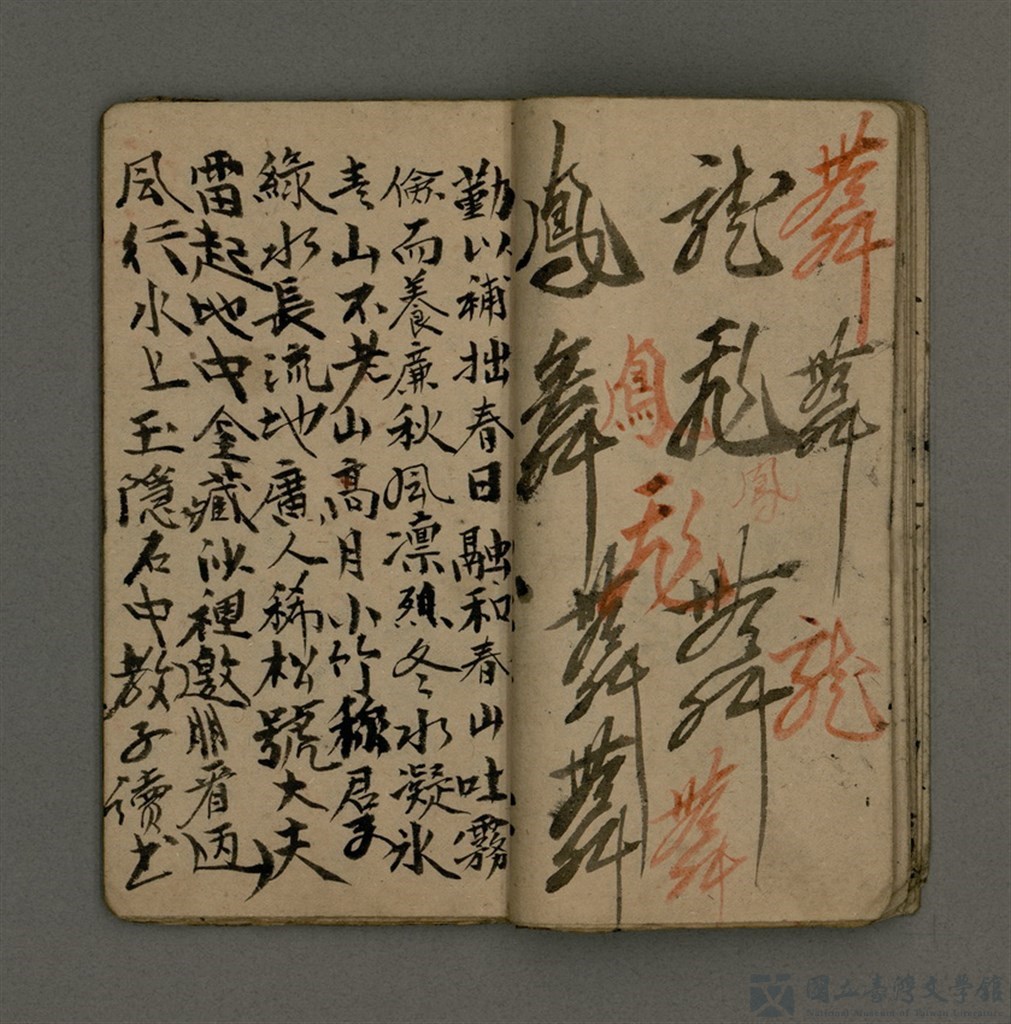 舞舞龍
龍飛舞
鳳
鳳飛舞
鳳舞舞舞
勤以補拙春日融和春山吐霧
儉而養廉秋風凛烈冬水凝氷
青山不老山高月小竹稱君子
綠水長流地廣人稀松號大夫
雷起地中金藏沙裡邀朋看
風行水上玉隱石中教子讀书
國立臺灣文學館
National Museum of Taiwan Literature